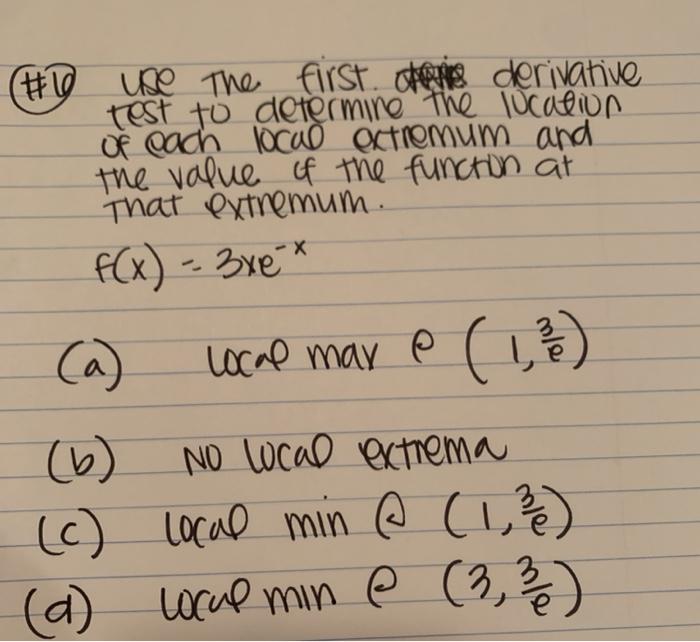 #6 use the first derivative
test to determine the location
of each local extremum and
the value of the function at
that extremum.
f(x) = 3xe^-x
(a) local max @ (1, 3/e)
(b) NO local extrema
(c) local min @ (1, 3/e)
(d) local min @ (3, 3/e)